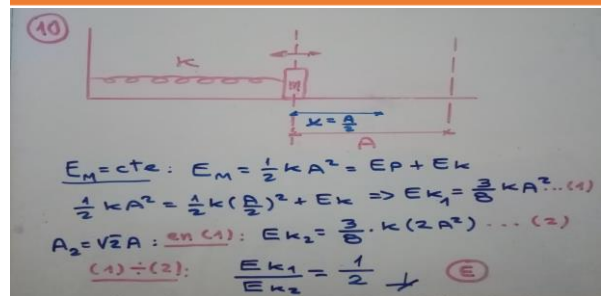 10
K
m
x = A/2
A
E_M = cte : E_M = 1/2 k A² = Ep + Ek
1/2 k A² = 1/2 k (A/2)² + Ek => Ek₁ = 3/8 k A² ... (1)
A₂ = √2 A : en (1) : Ek₂ = 3/8 . k (2 A²) ... (2)
(1) ÷ (2) : Ek₁/Ek₂ = 1/2 E